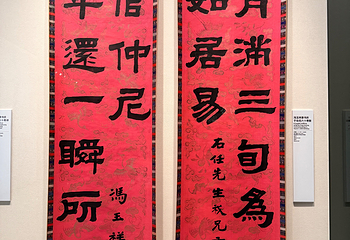 月滿三旬為
如居易
石任先生
信仲尼
馮玉祥
年還一瞬所